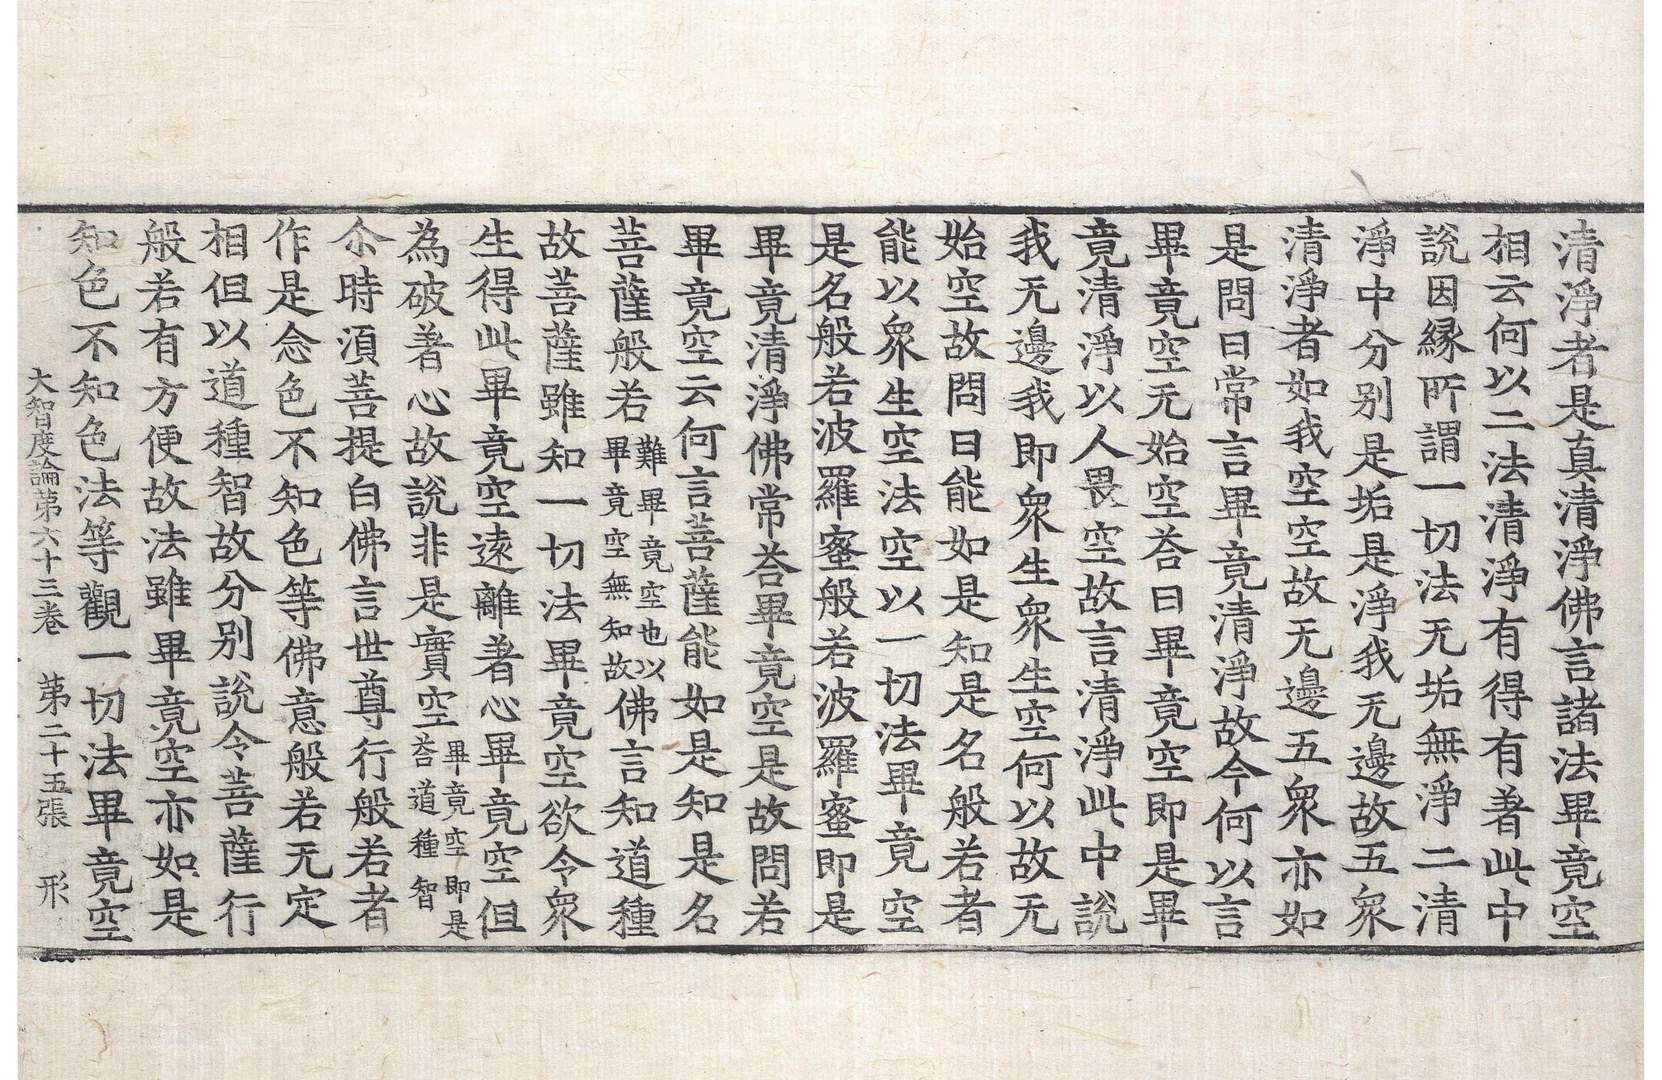 清淨者是真清淨佛言諸法畢竟空
相云何以二法清淨有得有著此中
說因縁所謂一切法无垢無淨二清
淨中分別是垢是淨我无邊故五衆
清淨者如我空空故无邊五衆亦如
是問曰常言畢竟清淨故今何以言
畢竟空无始空荅曰畢竟空即是畢
竟清淨以人畏空故言清淨此中說
我无邊我即衆生衆生空何以故无
始空故問曰能如是知是名般若者
能以衆生空法空以一切法畢竟空
是名般若波羅蜜般若波羅蜜即是
畢竟清淨佛常荅畢竟空是故問若
畢竟空云何言菩薩能如是知是名
菩薩般若難畢竟空也以畢竟空無知故佛言知道種
故菩薩雖知一切法畢竟空欲令衆
生得此畢竟空遠離著心畢竟空但
為破著心故說非是實空畢竟空即是荅道種智
尒時須菩提白佛言世尊行般若者
作是念色不知色等佛意般若无定
相但以道種智故分別說令菩薩行
般若有方便故法雖畢竟空亦如是
知色不知色法等觀一切法畢竟空
大智度論第六十三卷　第二十五張　形